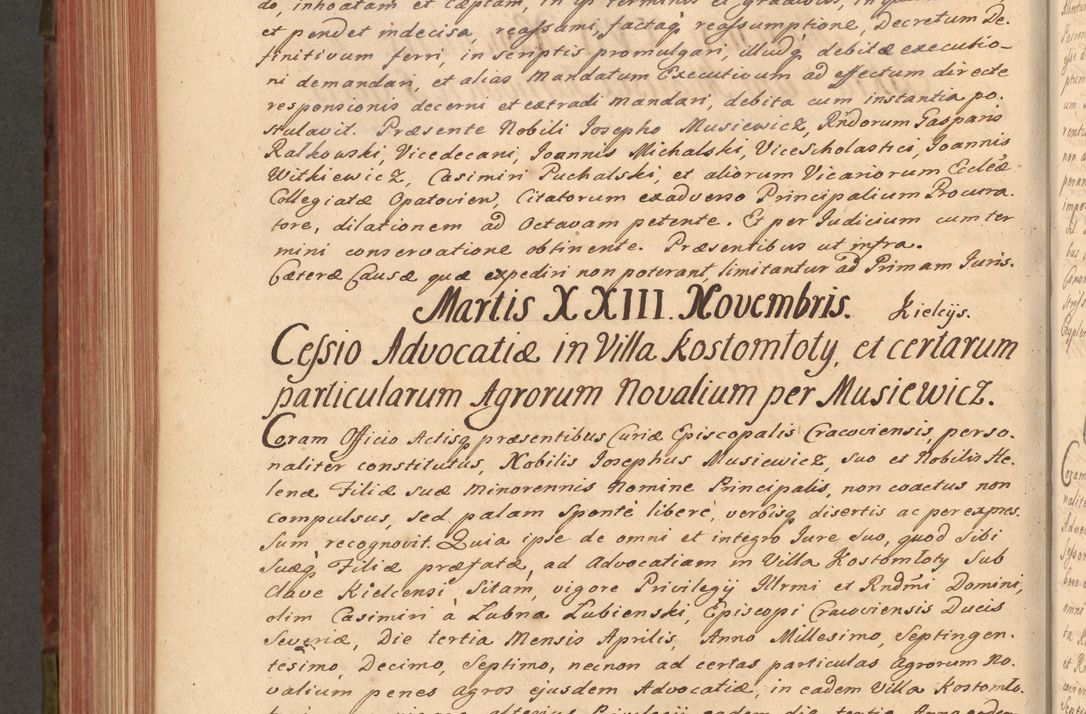 do, inhoatam et cæptam, in ip terminis et gradibus, in
et pendet indecisa, reaſsami, factaq reaſsumptione, Decretum De-
finitivum ferri, in scriptis promulgari, illudq debitæ executio-
ni demandari, et alias Mandatum Executivum ad effectum directe
responsionis decerni et extradi mandari, debita cum instantia po-
stulavit. Præsente Nobili Josepho Musiewicz, Rndorum Gasparis
Ratkowski, Vicedecani, Joannis Michalski, Vicescholastici, Joannis
Witkiewicz, Casimiri Puchalski, et aliorum Vicariorum Eccleæ
Collegiatæ Opatovien, Citatorum exadverso Principalium Procura-
tore, dilationem ad Octavam petente. Et per Judicium cum ter
mini conservatione obtinente. Præsentibus ut infra.
Cæteræ Causæ quæ expediri non poterant, limitantur ad Primam Juris.
Martis XXIII. Novembris. Kielcijs.
Ceſsio Advocatiæ in Villa Kostomłoty, et certarum
particularum Agrorum Novalium per Musiewicz.
Coram Officio Actisq præsentibus Curiæ Episcopalis Cracoviensis, perso-
naliter constitutus, Nobilis Josephus Musiewicz, suo et Nobilis He-
lenæ Filiæ suæ Minorennis Nomine Principalis, non coactus non
compulsus, sed palam sponte libere, verbisq disertis ac per expres-
sum recognovit. Quia ipse de omni et integro Jure suo, quod sibi
suæq Filiæ præfatæ, ad Advocatiam in Villa Kostomłoty sub
Clave Kielcensi Sitam, vigore Privilegij Illrmi et Rndmi Domini,
olim Casimiri à Lubna Lubienski, Episcopi Cracoviensis Ducis
Severiæ, Die tertia Mensis Aprilis, Anno Millesimo, Septingen-
tesimo, Decimo, Septimo, necnon ad certas particulas Agrorum No-
valium penes Agros ejusdem Advocatiæ, in eadem Villa Kostomło-